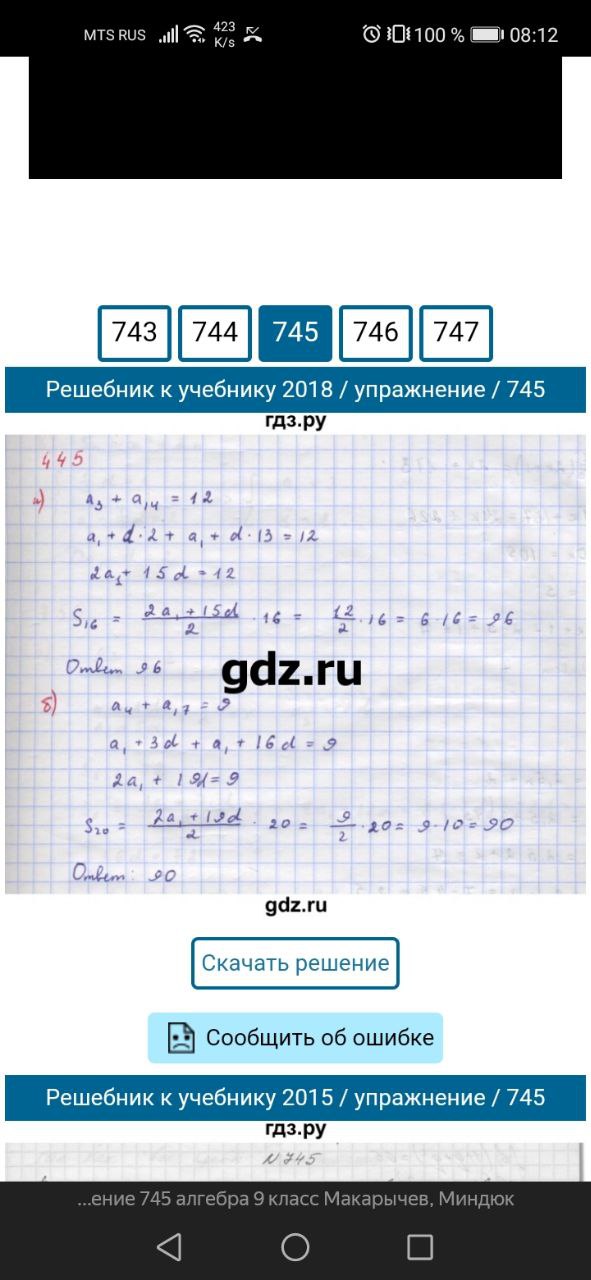 MTS RUS 423 K/s 100 % 08:12
743 744 745 746 747
Решебник к учебнику 2018 / упражнение / 745
гдз.ру
445
а) a₃ + a₁₄ = 12
a₁ + d · 2 + a₁ + d · 13 = 12
2a₁ + 15d = 12
S₁₆ = (2a₁ + 15d)/2 · 16 = 12/2 · 16 = 6 · 16 = 96
Ответ 96
gdz.ru
б) a₄ + a₁₇ = 9
a₁ + 3d + a₁ + 16d = 9
2a₁ + 19d = 9
S₂₀ = (2a₁ + 19d)/2 · 20 = 9/2 · 20 = 9 · 10 = 90
Ответ: 90
gdz.ru
Скачать решение
Сообщить об ошибке
Решебник к учебнику 2015 / упражнение / 745
гдз.ру
N 745
...ение 745 алгебра 9 класс Макарычев, Миндюк